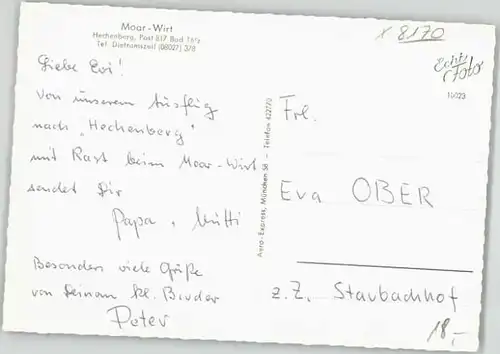 Moar-Wirt
Hechenberg, Post 817 Bad Tölz
Tel. Dietramszell (08027) 378
x 8170
Echt Foto
10023
Liebe Evi!
Von unserem Ausflug
nach "Hechenberg"
mit Rast beim Moar-Wirt
sendet Dir
Papa + Mutti
Besonders viele Grüße
von Deinem kl. Bruder
Peter
Aero-Express, München 58 - Telefon 422770
Frl.
Eva OBER
z.Z. Staubachhof
18,-